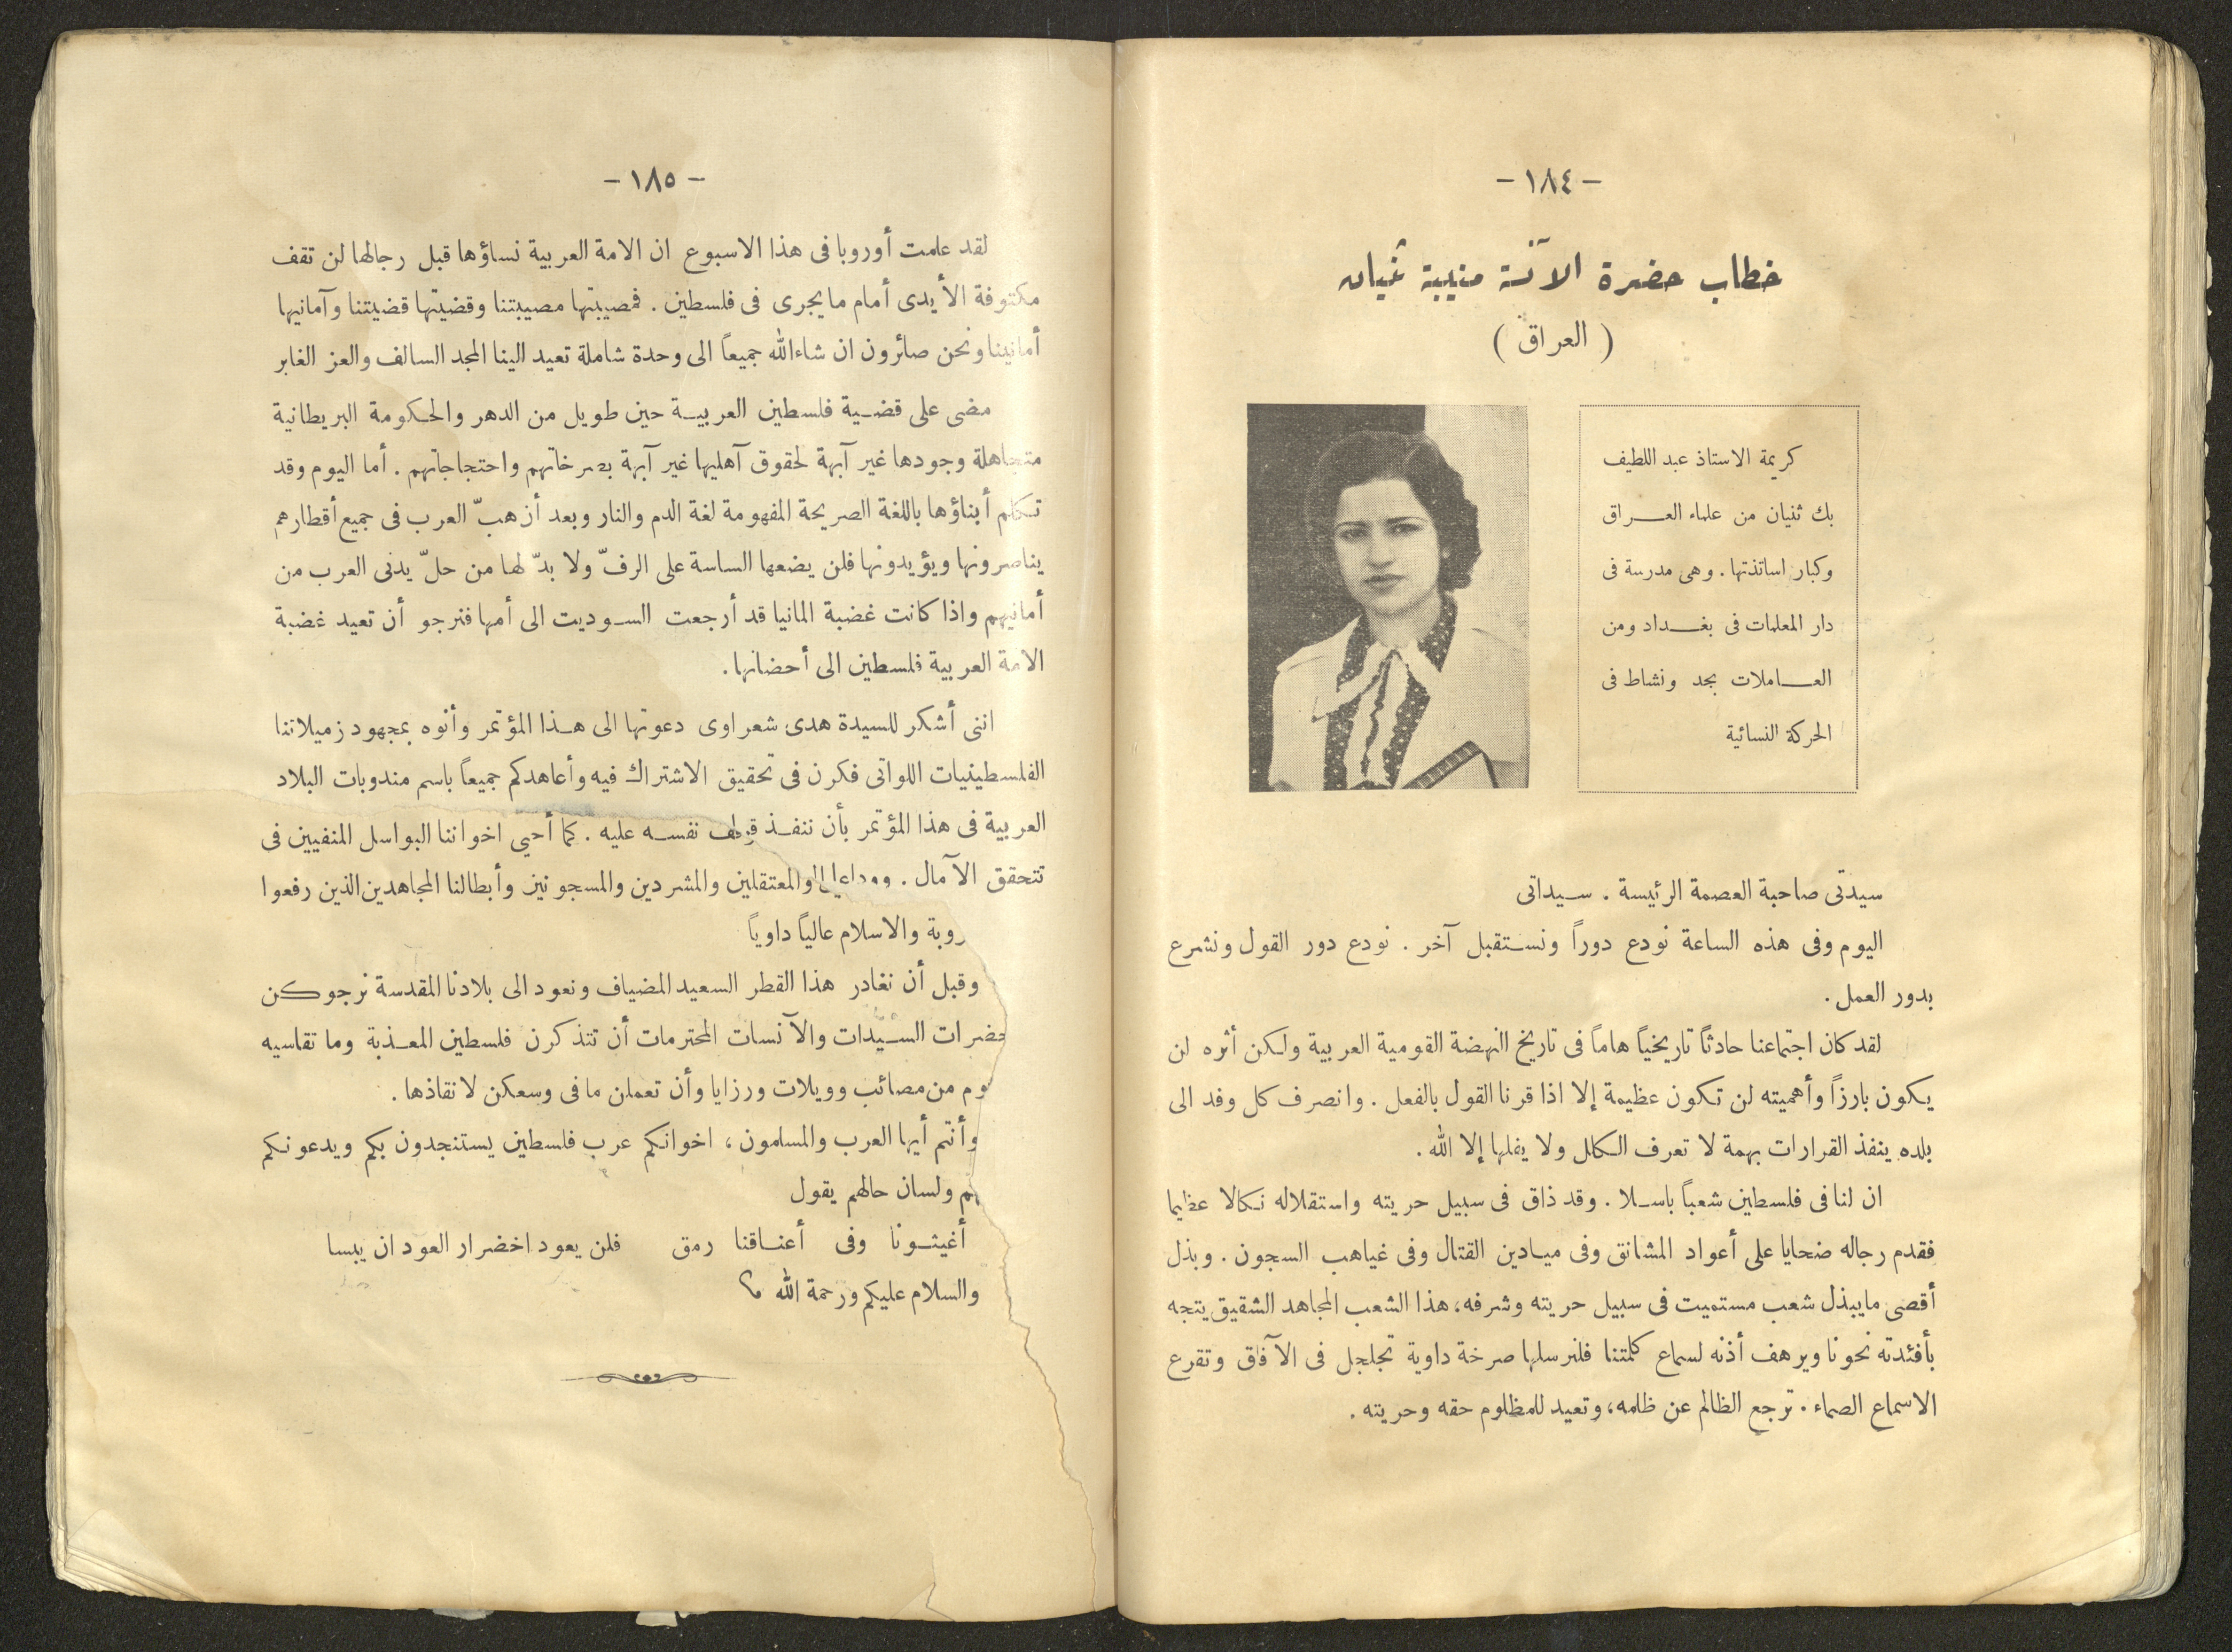 - ١٨٤ -
خطاب حضرة الآنسة منيبة ثنيان
( العراق )
كريمة الاستاذ عبد اللطيف
بك ثنيان من علماء العراق
وكبار اساتذتها . وهى مدرسة فى
دار المعلمات فى بغداد ومن
العاملات بجد ونشاط فى
الحركة النسائية
سيدتى صاحبة العصمة الرئيسة . سيداتى
اليوم وفى هذه الساعة نودع دوراً ونستقبل آخر . نودع دور القول ونشرع
بدور العمل .
لقد كان اجتماعنا حادثاً تاريخياً هاماً فى تاريخ النهضة القومية العربية ولكن أثره لن
يكون بارزاً وأهميته لن تكون عظيمة إلا اذا قرنا القول بالفعل . وانصرف كل وفد الى
بلده ينفذ القرارات بهمة لا تعرف الكلل ولا يفلها إلا الله .
ان لنا فى فلسطين شعباً باسلا . وقد ذاق فى سبيل حريته واستقلاله نكالا عظيما
فقدم رجاله ضحايا على أعواد المشانق وفى ميادين القتال وفى غياهب السجون . وبذل
أقصى مايبذل شعب مستميت فى سبيل حريته وشرفه، هذا الشعب المجاهد الشقيق يتجه
بأفئدته نحونا ويرهف أذنه لسماع كلمتنا فلنرسلها صرخة داوية تجلجل فى الآفاق وتقرع
الاسماع الصماء . ترجع الظالم عن ظلمه، وتعيد للمظلوم حقه وحريته .
- ١٨٥ -
لقد علمت أوروبا فى هذا الاسبوع ان الامة العربية نساؤها قبل رجالها لن تقف
مكتوفة الأيدى أمام مايجرى فى فلسطين . فمصيبتها مصيبتنا وقضيتها قضيتنا وآمانيها
أمانينا ونحن صائرون ان شاء الله جميعاً الى وحدة شاملة تعيد الينا المجد السالف والعز الغابر
مضى على قضية فلسطين العربية حين طويل من الدهر والحكومة البريطانية
متجاهلة وجودها غير آبهة لحقوق آهليها غير آبهة بصرخاتهم واحتجاجاتهم . أما اليوم وقد
تكلم أبناؤها باللغة الصريحة المفهومة لغة الدم والنار وبعد أن هبّ العرب فى جميع أقطارهم
يناصرونها ويؤيدونها فلن يضعها الساسة على الرفّ ولا بدّ لها من حلّ يدنى العرب من
أمانيهم واذا كانت غضبة المانيا قد أرجعت السوديت الى أمها فنرجو أن تعيد غضبة
الامة العربية فلسطين الى أحضانها .
اننى أشكر للسيدة هدى شعراوى دعوتها الى هذا المؤتمر وأنوه بمجهود زميلاتنا
الفلسطينيات اللواتى فكرن فى تحقيق الاشتراك فيه وأعاهدكم جميعاً باسم مندوبات البلاد
العربية فى هذا المؤتمر بأن ننفذ نفسه عليه . كما أحيي اخواننا البواسل المنفيين فى
تتحقق الآمال . والمعتقلين والمشردين والمسجونين وأبطالنا المجاهدين الذين رفعوا
روبة والاسلام عالياً داوياً
وقبل أن نغادر هذا القطر السعيد المضياف ونعود الى بلادنا المقدسة نرجوكن
حضرات السيدات والآنسات المحترمات أن تتذكرن فلسطين المعذبة وما تقاسيه
وم من مصائب وويلات ورزايا وأن تعملن ما فى وسعكن لانقاذها .
وأنتم أيها العرب والمسلمون، اخوانكم عرب فلسطين يستنجدون بكم ويدعونكم
هم ولسان حالهم يقول
أغيثونا وفى أعناقنا رمق فلن يعود اخضرار العود ان يبسا
والسلام عليكم ورحمة الله